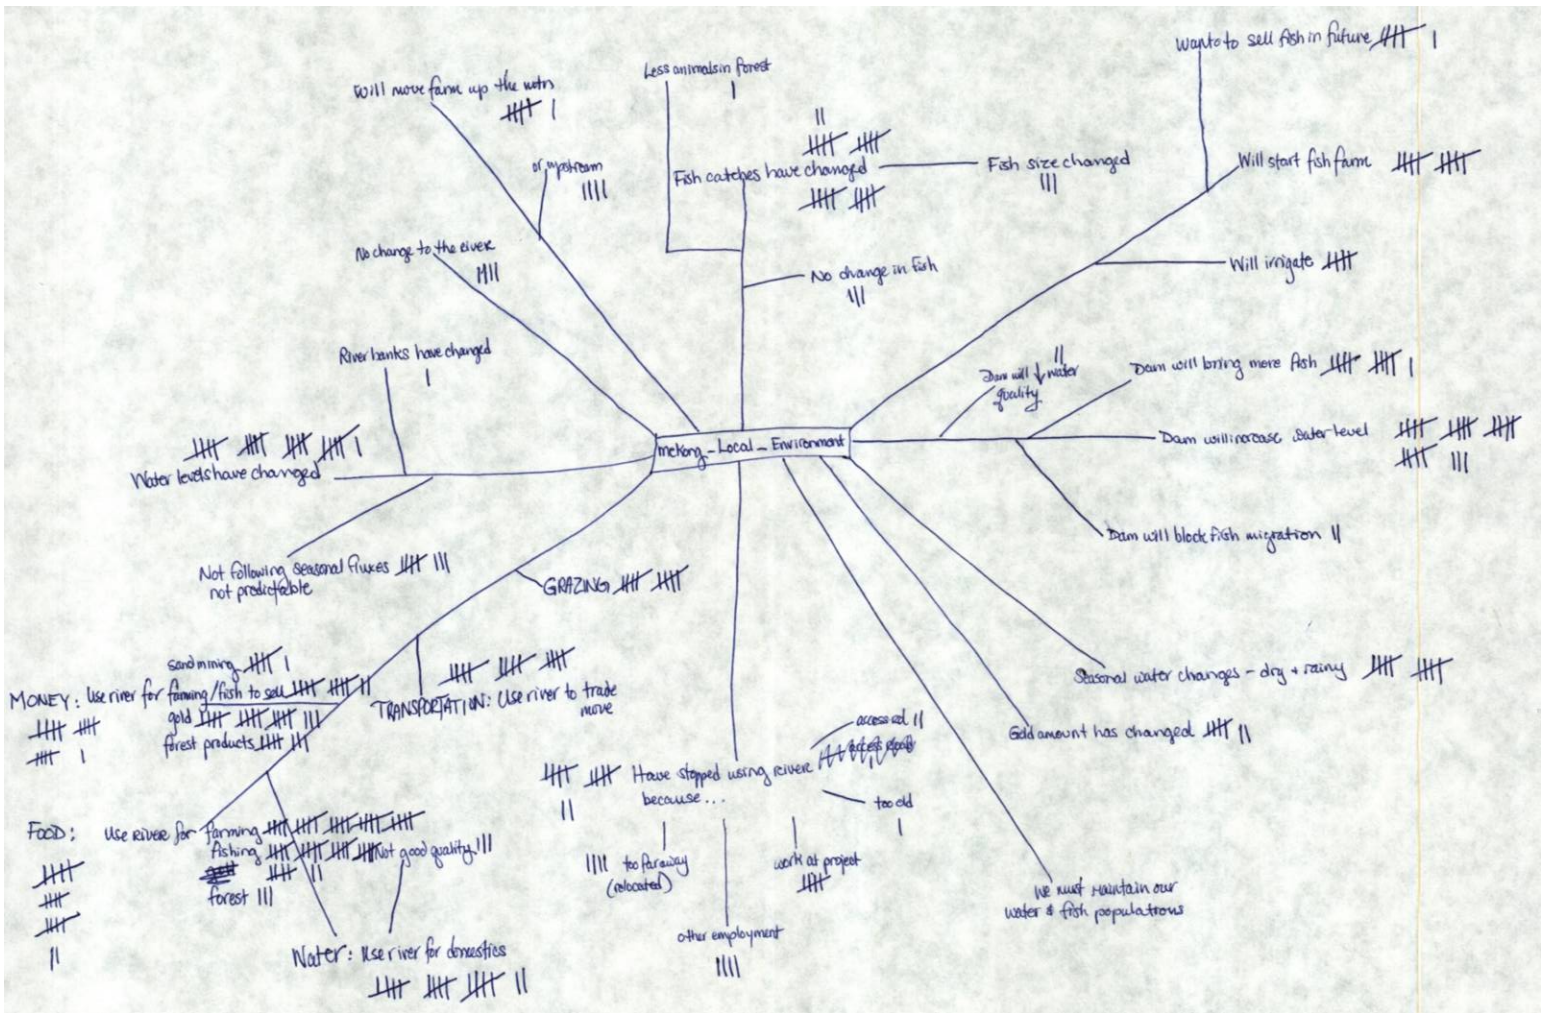 Will move farm up the mtns
or upstream
No change to the river
River banks have changed
Water levels have changed
Not following seasonal fluxes
not predictable
Less animals in forest
Fish catches have changed
Fish size changed
No change in fish
Wants to sell fish in future
Will start fish farm
Will irrigate
Dam will ↓ water
quality
Dam will bring more fish
Dam will increase water level
Dam will block fish migration
Mekong - Local - Environment
Seasonal water changes - dry + rainy
Gold amount has changed
We must maintain our
water & fish populations
GRAZING
TRANSPORTATION: Use river to trade
move
sand mining
MONEY: Use river for farming/fish to sell
gold
forest products
FOOD: Use River for farming
fishing
forest
Not good quality
Water: Use river for domestics
Have stopped using river
because...
too old
too far away
(relocated)
work at project
other employment